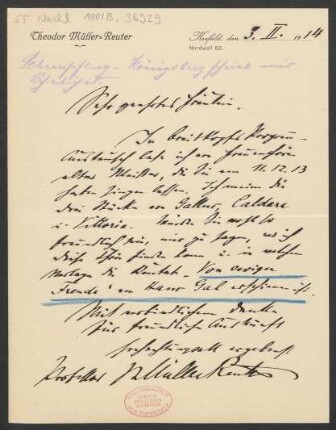 55 Nachl 1001.B. 36929
Theodor Müller-Reuter
Krefeld, den 3. II. 1914
Nordwall 62.
Königsberg
Sehr geehrtes Fräulein.
In Breitkopfs Program
Austausch lese ich von Frauenchören
alter Meister, die Sie am 11.12.13
haben singen lassen. Ich meine die
drei Stücke von Gallus, Caldara
u. Vittoria. Würden Sie wohl so
freundlich sein, mir zu sagen, wo ich
diese Chöre finden kann u. in welchem
Verlage die Kantate "Von ewiger
Freude" von Hans Gal erschienen ist.
Mit verbindlichem Danke
für freundl. Auskunft
hochachtungsvoll ergebenst
Professor Th Müller-Reuter